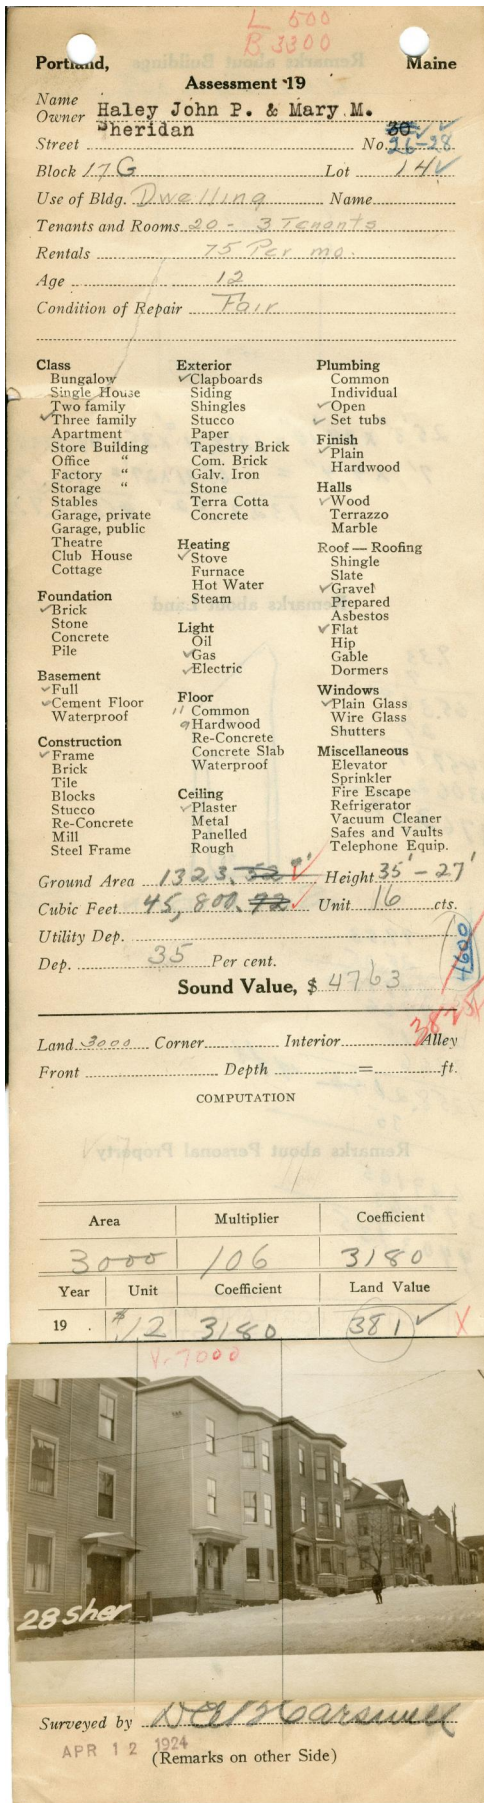 L 500
B 3300
Portland, Maine
Assessment 19
Name
Owner Haley John P. & Mary M.
Street Sheridan No. 30 26-28
Block 17G Lot 14
Use of Bldg. Dwelling Name
Tenants and Rooms 20 - 3 Tenants
Rentals 75 Per mo.
Age 12
Condition of Repair Fair
Class
Bungalow
Single House
Two family
Three family
Apartment
Store Building
Office "
Factory "
Storage "
Stables
Garage, private
Garage, public
Theatre
Club House
Cottage
Foundation
Brick
Stone
Concrete
Pile
Basement
Full
Cement Floor
Waterproof
Construction
Frame
Brick
Tile
Blocks
Stucco
Re-Concrete
Mill
Steel Frame
Exterior
Clapboards
Siding
Shingles
Stucco
Paper
Tapestry Brick
Com. Brick
Galv. Iron
Stone
Terra Cotta
Concrete
Heating
Stove
Furnace
Hot Water
Steam
Light
Oil
Gas
Electric
Floor
11 Common
9 Hardwood
Re-Concrete
Concrete Slab
Waterproof
Ceiling
Plaster
Metal
Panelled
Rough
Plumbing
Common
Individual
Open
Set tubs
Finish
Plain
Hardwood
Halls
Wood
Terrazzo
Marble
Roof — Roofing
Shingle
Slate
Gravel
Prepared
Asbestos
Flat
Hip
Gable
Dormers
Windows
Plain Glass
Wire Glass
Shutters
Miscellaneous
Elevator
Sprinkler
Fire Escape
Refrigerator
Vacuum Cleaner
Safes and Vaults
Telephone Equip.
Ground Area 1323.52 Height 35' - 27'
Cubic Feet 45,800.92 Unit 16 cts.
Utility Dep.
Dep. 35 Per cent.
4600
Sound Value, $ 4763
Land 3000 Corner Interior Alley
Front Depth = ft.
COMPUTATION
Area Multiplier Coefficient
3000 106 3180
Year Unit Coefficient Land Value
19 . $12 3180 381 X
V-7000
28 Sher
Surveyed by
APR 12 1924
(Remarks on other Side)